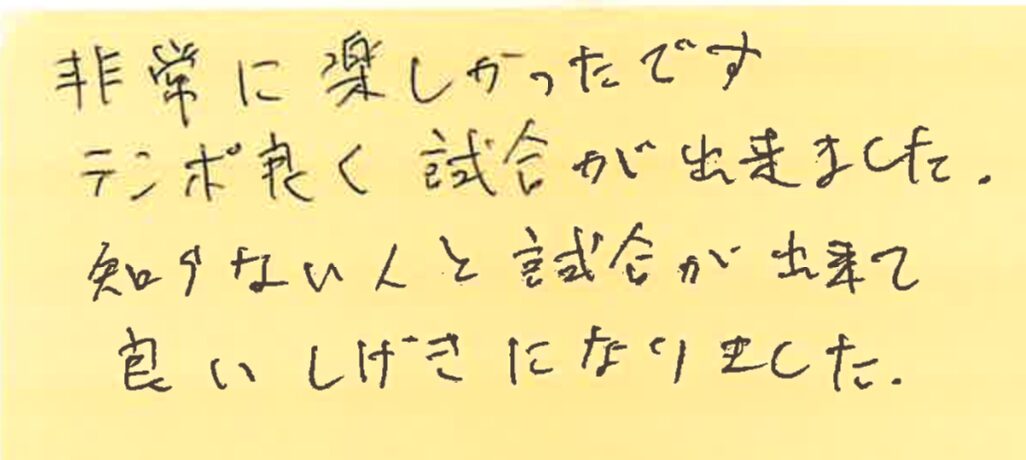 非常に楽しかったです
テンポ良く試合が出来ました.
知らない人と試合が出来て
良いしげきになりました.